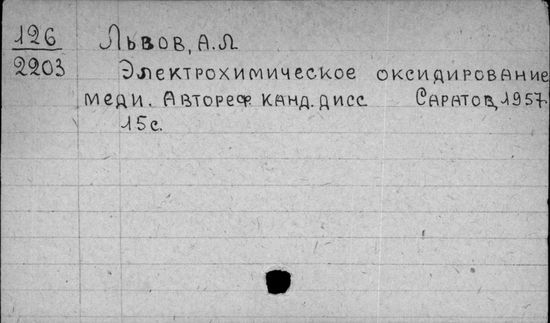 126 Львов, А.Л
2203 Электрохимическое оксидирование
меди. Автореф. канд. дисс Саратов, 1957.
15с.